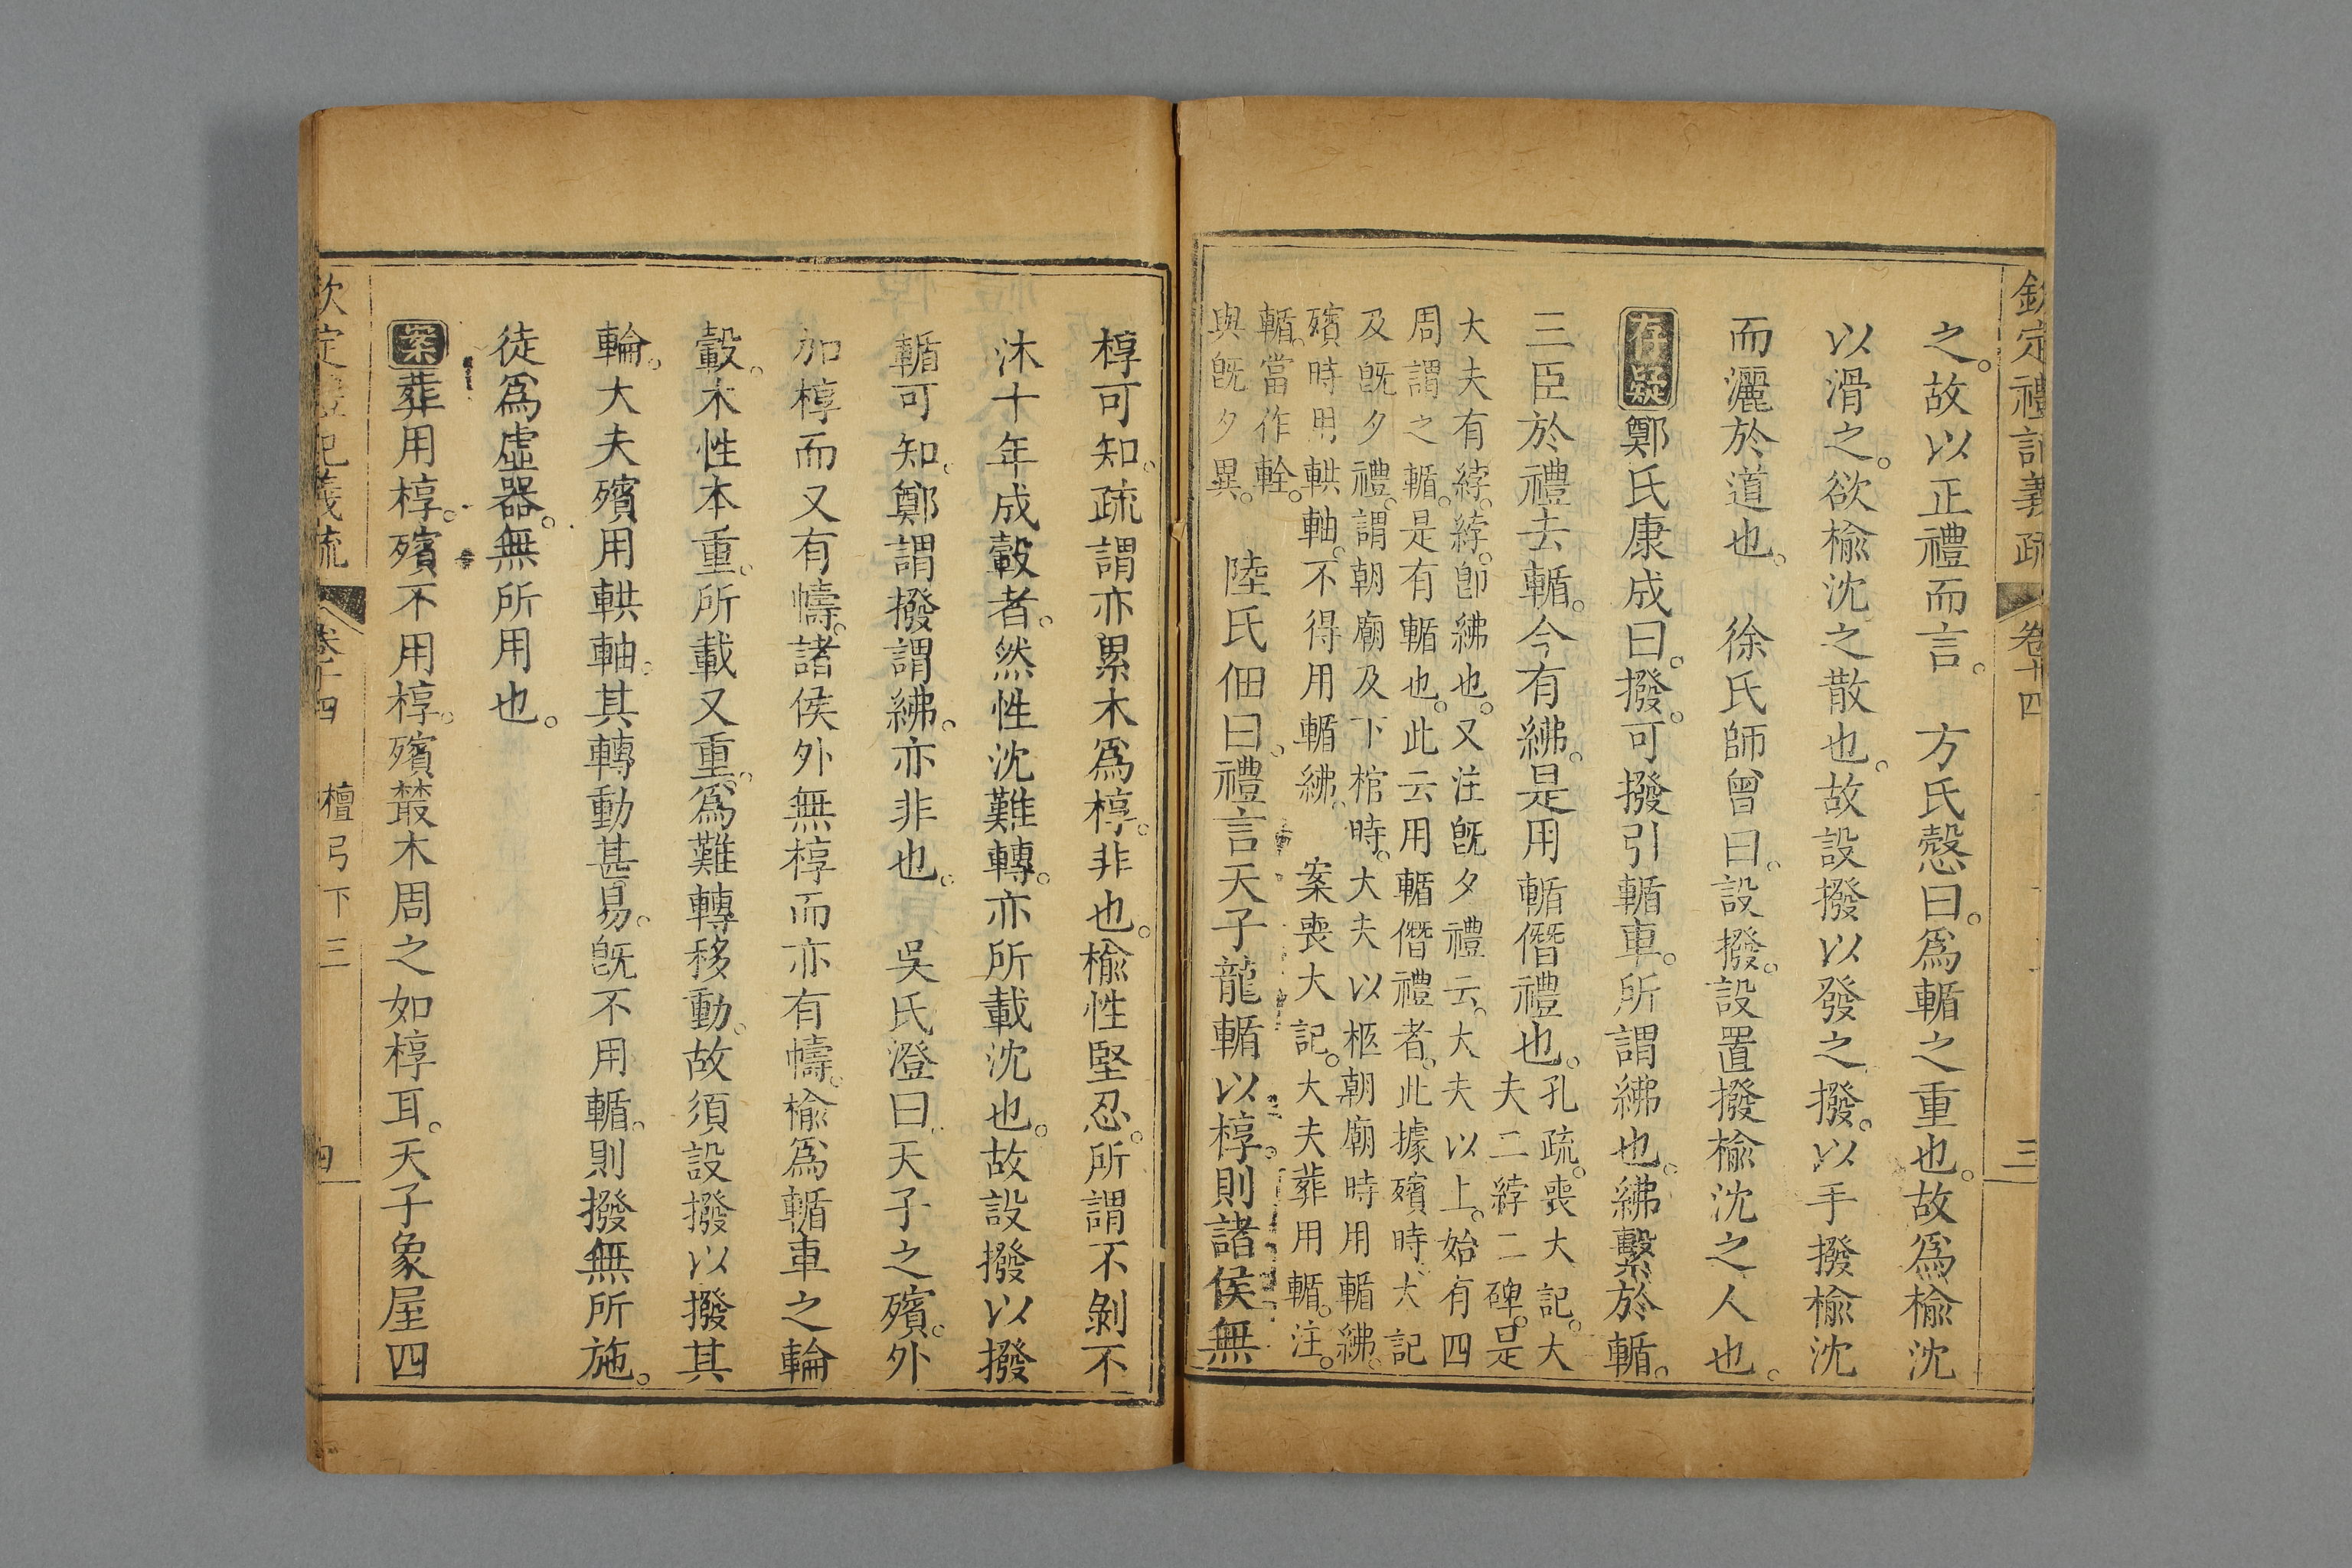 欽定禮記義疏 卷十四 三
之。故以正禮而言。 方氏慤曰。爲輴之重也。故爲楡沈
以滑之。欲楡沈之散也。故設撥以發之。撥。以手撥楡沈
而灑於道也。 徐氏師曾曰。設撥。設置撥楡沈之人也。
存疑鄭氏康成曰。撥。可撥引輴車。所謂紼也。紼繫於輴。
三臣於禮去輴。今有紼。是用輴僭禮也。
孔疏。喪大記。大
夫二綍二碑。是
大夫有綍。綍。卽紼也。又注旣夕禮云。大夫以上。始有四
周謂之輴。是有輴也。此云用輴僭禮者。此據殯時。大記
及旣夕禮。謂朝廟及下棺時。大夫以柩朝廟時用輴紼。
殯時用輁軸。不得用輴紼。 案喪大記。大夫葬用輴。注。
輴。當作輇。
與旣夕異。
陸氏佃曰。禮言天子龍輴以椁。則諸侯無
椁可知。疏謂亦累木爲椁。非也。楡性堅忍。所謂不剝不
沐十年成轂者。然性沈難轉。亦所載沈也。故設撥以撥
輴可知。鄭謂撥謂紼。亦非也。 吳氏澄曰。天子之殯。外
加椁而又有幬。諸侯外無椁而亦有幬。楡爲輴車之輪
轂。木性本重。所載又重。爲難轉移動。故須設撥以撥其
輪。大夫殯用輁軸。其轉動甚易。旣不用輴。則撥無所施。
徒爲虛器。無所用也。
案葬用椁。殯不用椁。殯叢木周之如椁耳。天子象屋四
欽定禮記義疏 卷十四 檀弓下三 四